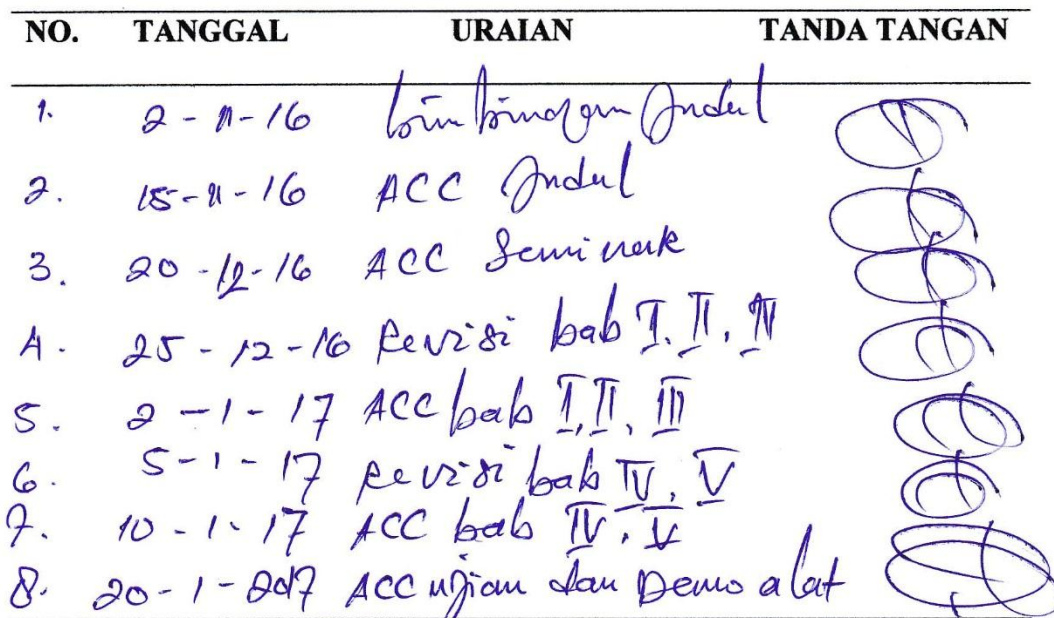 NO. TANGGAL URAIAN TANDA TANGAN
1. 2-11-16 bimbingan Judul
2. 15-11-16 ACC Judul
3. 20-12-16 ACC Seminar
4. 25-12-16 Revisi bab I. II. III
5. 2-1-17 ACC bab I, II, III
6. 5-1-17 Revisi bab IV, V
7. 10-1-17 ACC bab IV, V
8. 20-1-2017 ACC ujian dan Demo alat